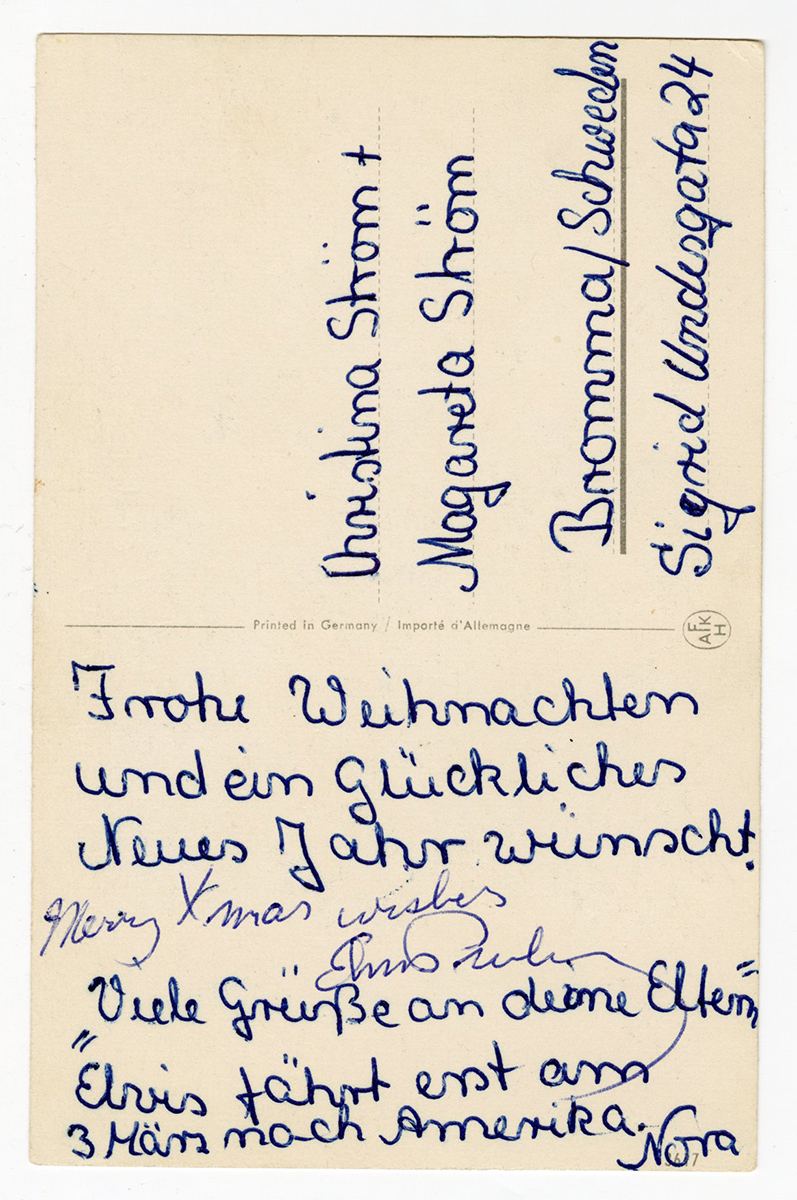 Christina Ström +
Magareta Ström
Bromma/Schweden
Sigrid Undesgata 24
Printed in Germany / Importé d'Allemagne
Frohe Weihnachten
und ein Glückliches
Neues Jahr wünscht.
Merry Xmas wishes
Elvis Presley
Viele Grüße an deine Eltern
"Elvis fährt erst am
3 März nach Amerika."
Nora